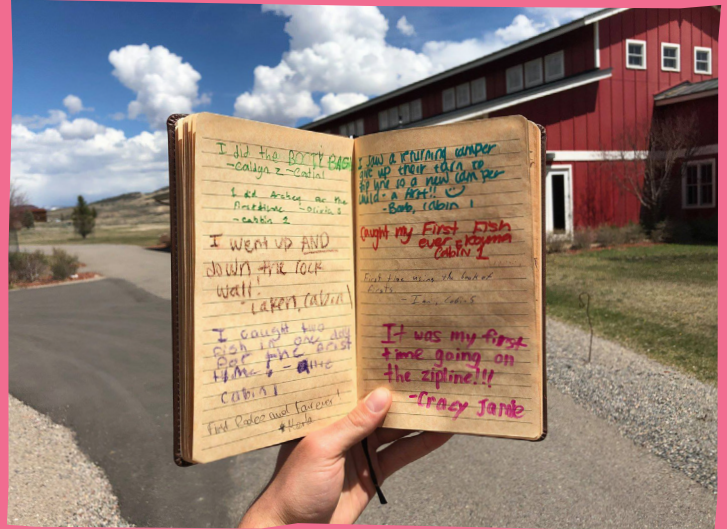 I did the BOOTY BASH
- Caidyn Z - Cabin 1
I did Archey for the
first time - Olivia S
- cabbin 1
I went up AND
down the rock
wall!
- Laken, Cabin 1
I caught two
fish in one day
for the first
time
Cabin 1
First Rodeo and Forever!
I saw a returning camper
give up their turn to
zip line so a new camper
could - a first!!
- Barb, Cabin 1
Caught my First Fish
ever
Cabin 1
First time using the book of
firsts
It was my first
time going on
the zipline!!!
- Crazy Jamie